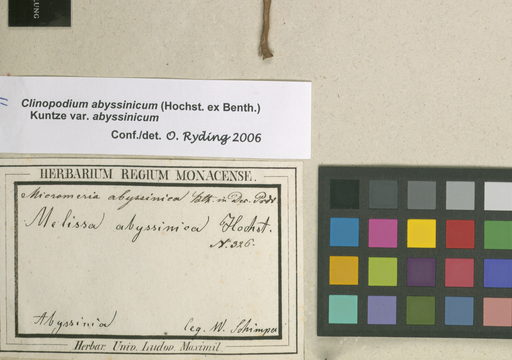 LUNG
Clinopodium abyssinicum (Hochst. ex Benth.)
Kuntze var. abyssinicum
Conf./det. O. Ryding 2006
HERBARIUM REGIUM MONACENSE.
Micromeria abyssinica in Dec. Prodr
Melissa abyssinica Hochst.
N. 326.
Abyssinia leg. W. Schimper
Herbar. Univ. Ludov. Maximil.